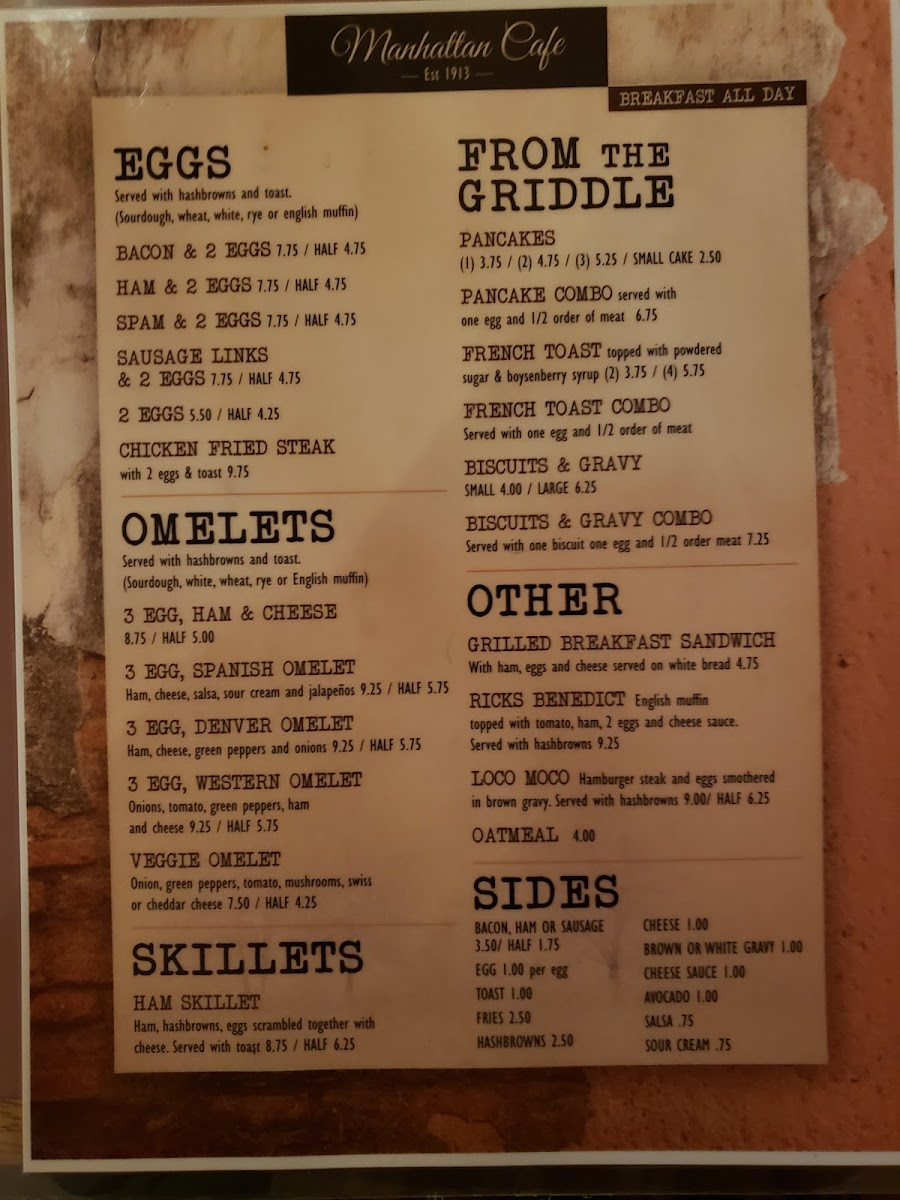 Manhattan Cafe
Est 1913
BREAKFAST ALL DAY
EGGS
Served with hashbrowns and toast.
(Sourdough, wheat, white, rye or english muffin)
BACON & 2 EGGS 7.75 / HALF 4.75
HAM & 2 EGGS 7.75 / HALF 4.75
SPAM & 2 EGGS 7.75 / HALF 4.75
SAUSAGE LINKS
& 2 EGGS 7.75 / HALF 4.75
2 EGGS 5.50 / HALF 4.25
CHICKEN FRIED STEAK
with 2 eggs & toast 9.75
OMELETS
Served with hashbrowns and toast.
(Sourdough, white, wheat, rye or English muffin)
3 EGG, HAM & CHEESE
8.75 / HALF 5.00
3 EGG, SPANISH OMELET
Ham, cheese, salsa, sour cream and jalapeños 9.25 / HALF 5.75
3 EGG, DENVER OMELET
Ham, cheese, green peppers and onions 9.25 / HALF 5.75
3 EGG, WESTERN OMELET
Onions, tomato, green peppers, ham
and cheese 9.25 / HALF 5.75
VEGGIE OMELET
Onion, green peppers, tomato, mushrooms, swiss
or cheddar cheese 7.50 / HALF 4.25
SKILLETS
HAM SKILLET
Ham, hashbrowns, eggs scrambled together with
cheese. Served with toast 8.75 / HALF 6.25
FROM THE
GRIDDLE
PANCAKES
(1) 3.75 / (2) 4.75 / (3) 5.25 / SMALL CAKE 2.50
PANCAKE COMBO served with
one egg and 1/2 order of meat 6.75
FRENCH TOAST topped with powdered
sugar & boysenberry syrup (2) 3.75 / (4) 5.75
FRENCH TOAST COMBO
Served with one egg and 1/2 order of meat
BISCUITS & GRAVY
SMALL 4.00 / LARGE 6.25
BISCUITS & GRAVY COMBO
Served with one biscuit one egg and 1/2 order meat 7.25
OTHER
GRILLED BREAKFAST SANDWICH
With ham, eggs and cheese served on white bread 4.75
RICKS BENEDICT English muffin
topped with tomato, ham, 2 eggs and cheese sauce.
Served with hashbrowns 9.25
LOCO MOCO Hamburger steak and eggs smothered
in brown gravy. Served with hashbrowns 9.00/ HALF 6.25
OATMEAL 4.00
SIDES
BACON, HAM OR SAUSAGE
3.50/ HALF 1.75
EGG 1.00 per egg
TOAST 1.00
FRIES 2.50
HASHBROWNS 2.50
CHEESE 1.00
BROWN OR WHITE GRAVY 1.00
CHEESE SAUCE 1.00
AVOCADO 1.00
SALSA .75
SOUR CREAM .75